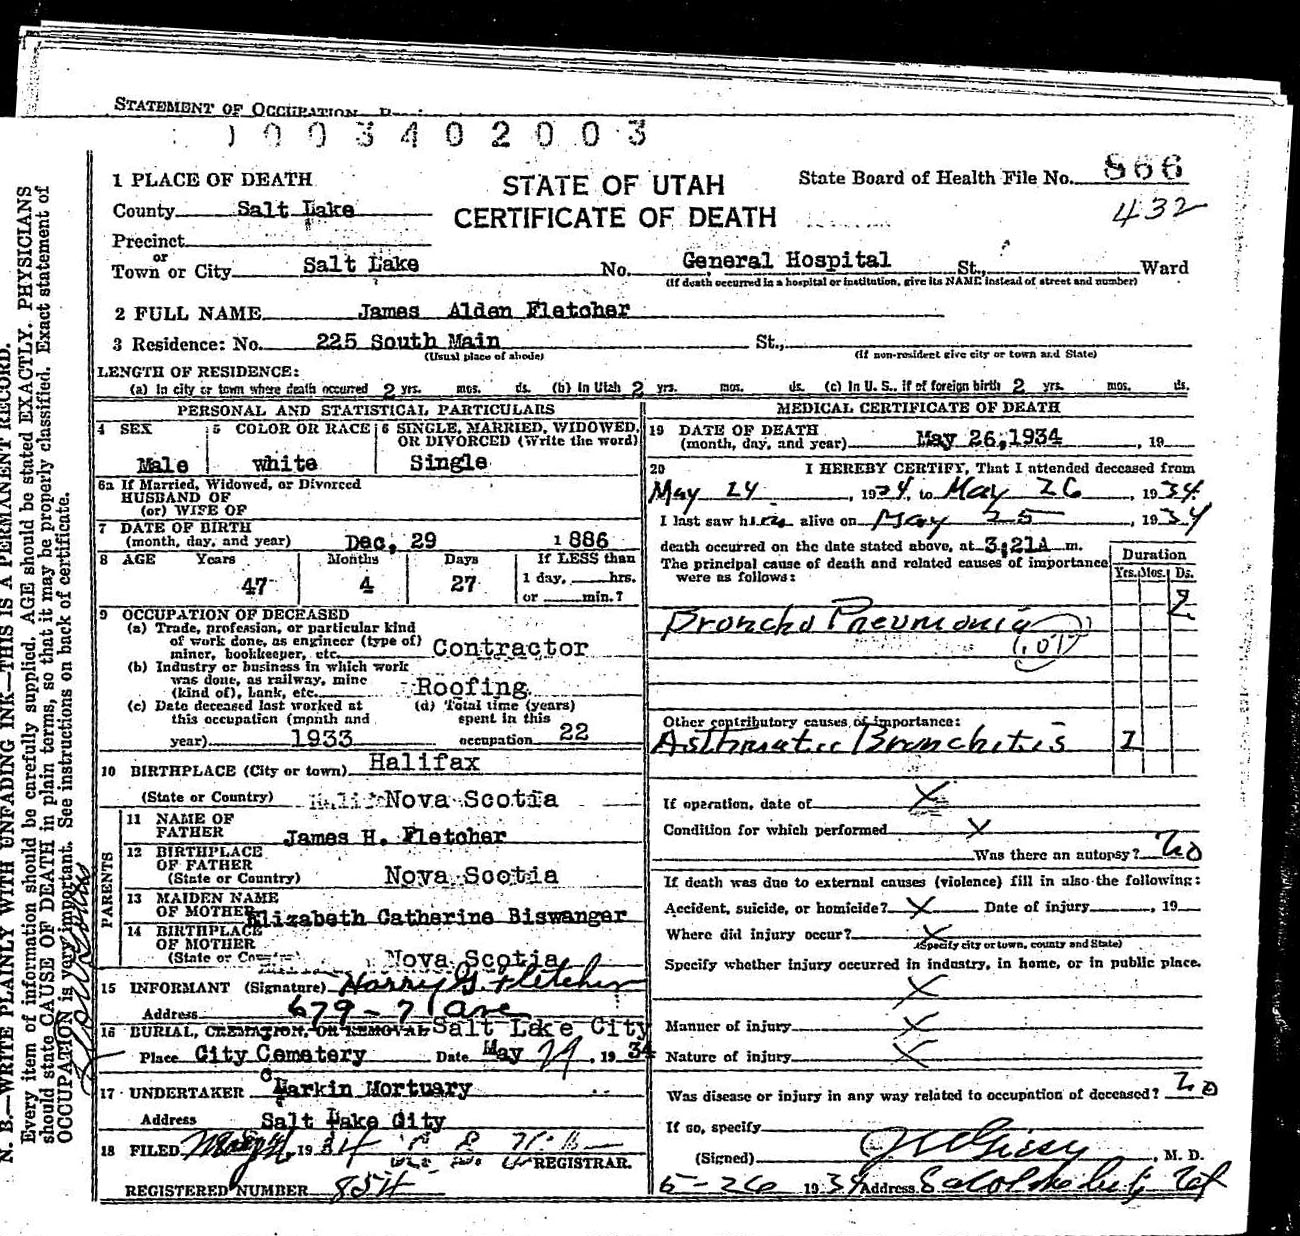 STATEMENT OF OCCUPATION
1003402003
1 PLACE OF DEATH
STATE OF UTAH
CERTIFICATE OF DEATH
State Board of Health File No. 866
432
County Salt Lake
Precinct
or
Town or City Salt Lake No. General Hospital St., Ward
(If death occurred in a hospital or institution, give its NAME instead of street and number)
2 FULL NAME James Alden Fletcher
3 Residence: No. 225 South Main St.,
(Usual place of abode) (If non-resident give city or town and State)
LENGTH OF RESIDENCE:
(a) In city or town where death occurred 2 yrs. mos. ds. (b) In Utah 2 yrs. mos. ds. (c) In U. S., if of foreign birth 2 yrs. mos. ds.
PERSONAL AND STATISTICAL PARTICULARS
4 SEX Male
5 COLOR OR RACE white
6 SINGLE, MARRIED, WIDOWED, OR DIVORCED (Write the word) Single
6a If Married, Widowed, or Divorced
HUSBAND OF
(or) WIFE OF
7 DATE OF BIRTH
(month, day, and year) Dec. 29 1886
8 AGE Years 47 Months 4 Days 27
If LESS than
1 day, hrs.
or min.?
9 OCCUPATION OF DECEASED
(a) Trade, profession, or particular kind
of work done, as engineer (type of)
miner, bookkeeper, etc. Contractor
(b) Industry or business in which work
was done, as railway, mine
(kind of), bank, etc. Roofing
(c) Date deceased last worked at
this occupation (month and
year) 1933
(d) Total time (years)
spent in this
occupation 22
10 BIRTHPLACE (City or town) Halifax
(State or Country) Nova Scotia
PARENTS
11 NAME OF
FATHER James H. Fletcher
12 BIRTHPLACE
OF FATHER
(State or Country) Nova Scotia
13 MAIDEN NAME
OF MOTHER Elizabeth Catherine Biswanger
14 BIRTHPLACE
OF MOTHER
(State or Country) Nova Scotia
15 INFORMANT (Signature) Harry G. Fletcher
Address 679 - 7 Ave
16 BURIAL, CREMATION, OR REMOVAL Salt Lake City
Place City Cemetery Date May 29, 1934
17 UNDERTAKER Larkin Mortuary
Address Salt Lake City
18 FILED 1934 REGISTRAR.
REGISTERED NUMBER 854
MEDICAL CERTIFICATE OF DEATH
19 DATE OF DEATH
(month, day, and year) May 26, 1934, 19
20 I HEREBY CERTIFY, That I attended deceased from
May 24, 1934, to May 26, 1934.
I last saw him alive on May 25, 1934
death occurred on the date stated above, at 3:21A m.
The principal cause of death and related causes of importance
were as follows:
Duration
Yrs. Mos. Ds.
2
Broncho Pneumonia
107
Other contributory causes of importance:
Asthmatic Bronchitis 1
If operation, date of X
Condition for which performed X
Was there an autopsy? No
If death was due to external causes (violence) fill in also the following:
Accident, suicide, or homicide? X Date of injury, 19
Where did injury occur? X
(Specify city or town, county and State)
Specify whether injury occurred in industry, in home, or in public place.
X
Manner of injury X
Nature of injury X
Was disease or injury in any way related to occupation of deceased? No
If so, specify
(Signed), M. D.
5-26 1934 Address
N. B.—WRITE PLAINLY WITH UNFADING INK—THIS IS A PERMANENT RECORD.
Every item of information should be carefully supplied. AGE should be stated EXACTLY. PHYSICIANS
should state CAUSE OF DEATH in plain terms, so that it may be properly classified. Exact statement of
OCCUPATION is very important. See instructions on back of certificate.